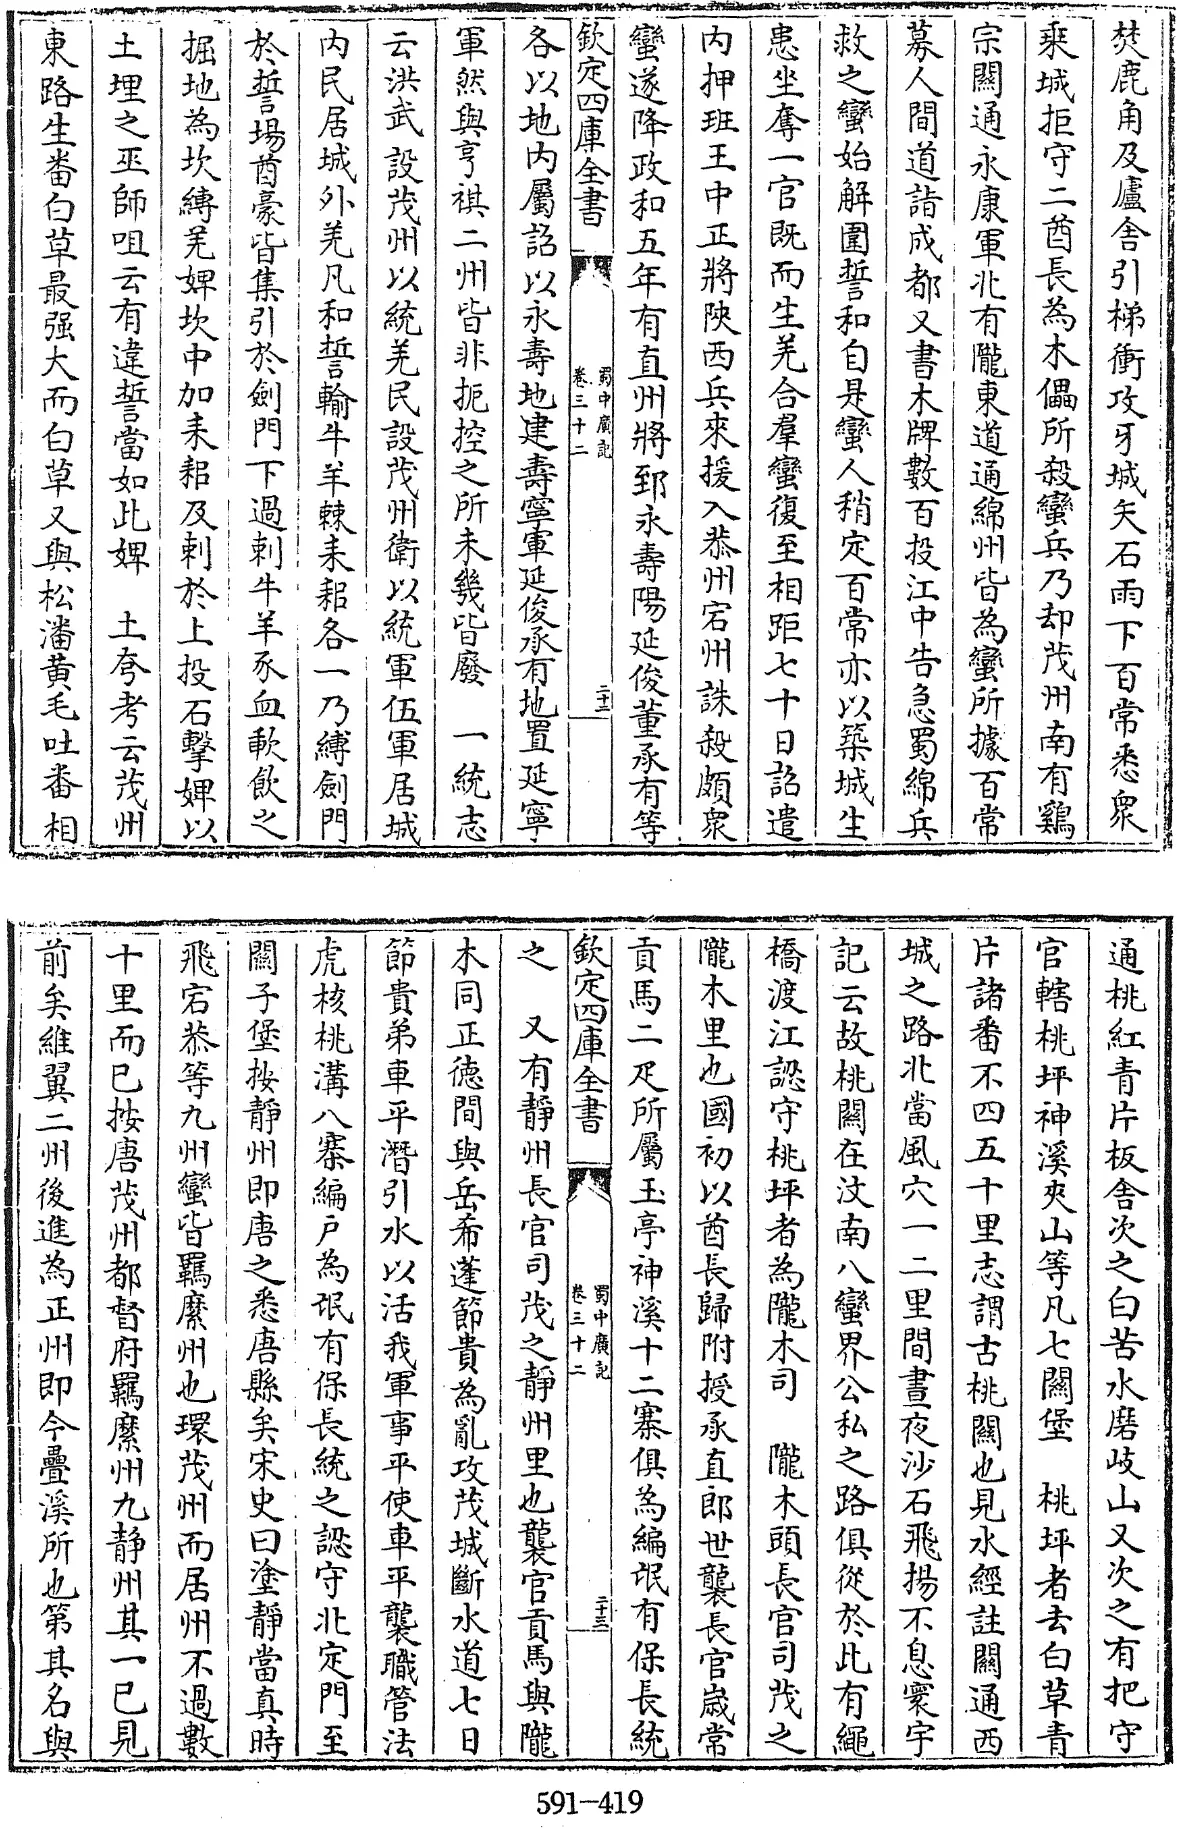 焚鹿角及廬舍引梯衝攻牙城矢石雨下百常悉衆
乘城拒守二酋長為木儡所殺蠻兵乃却茂州南有鷄
宗關通永康軍北有隴東道通綿州皆為蠻所據百常
募人間道詣成都又書木牌數百投江中告急蜀綿兵
救之蠻始解圍誓和自是蠻人稍定百常亦以築城生
患坐奪一官既而生羌合羣蠻復至相距七十日詔遣
内押班王中正將陝西兵來援入恭州宕州誅殺頗衆
蠻遂降政和五年有直州將郅永壽陽延俊董承有等
欽定四庫全書
蜀中廣記
卷三十二
二十二
各以地内屬詔以永壽地建壽寧軍延俊承有地置延寧
軍然與亨祺二州皆非扼控之所未幾皆廢　一統志
云洪武設茂州以統羌民設茂州衛以統軍伍軍居城
内民居城外羌凡和誓輸牛羊棘耒耜各一乃縛劍門
於誓場酋豪皆集引於劍門下過刺牛羊豕血歃飲之
掘地為坎縛羌婢坎中加耒耜及刺於上投石擊婢以
土埋之巫師咀云有違誓當如此婢　土夸考云茂州
東路生番白草最强大而白草又與松潘黄毛吐番相
通桃紅青片板舍次之白苦水磨歧山又次之有把守
官轄桃坪神溪夾山等凡七關堡　桃坪者去白草青
片諸番不四五十里志謂古桃關也見水經註關通西
城之路北當風穴一二里間晝夜沙石飛揚不息寰宇
記云故桃關在汶南八蠻界公私之路俱從於此有繩
橋渡江認守桃坪者為隴木司　隴木頭長官司茂之
隴木里也國初以酋長歸附授承直郎世襲長官歲常
貢馬二疋所屬玉亭神溪十二寨俱為編氓有保長統
欽定四庫全書
蜀中廣記
卷三十二
二十三
之　又有靜州長官司茂之靜州里也襲官貢馬與隴
木同正德間與岳希蓬節貴為亂攻茂城斷水道七日
節貴弟車平潛引水以活我軍事平使車平襲職管法
虎核桃溝八寨編戶為氓有保長統之認守北定門至
關子堡按靜州即唐之悉唐縣矣宋史曰塗靜當真時
飛宕恭等九州蠻皆羈縻州也環茂州而居州不過數
十里而已按唐茂州都督府羈縻州九靜州其一已見
前矣維翼二州後進為正州即今疊溪所也第其名與
591-419